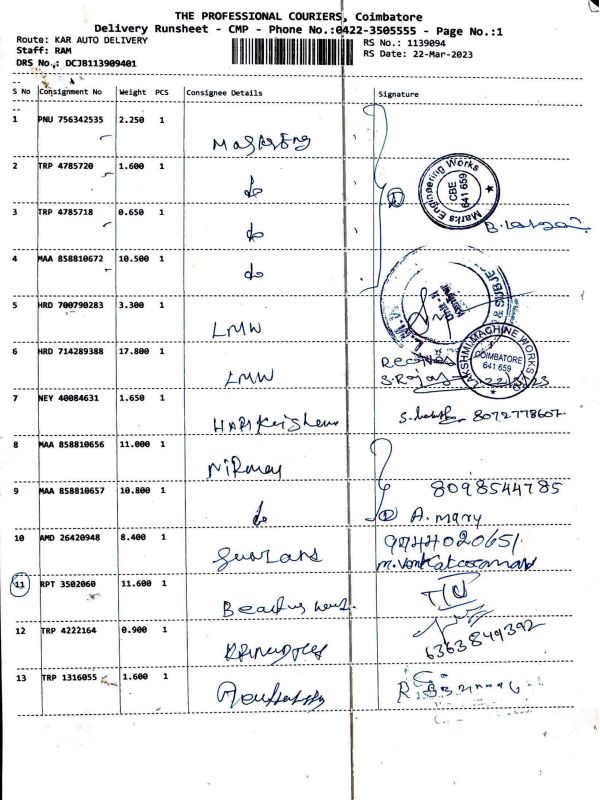 THE PROFESSIONAL COURIERS, Coimbatore
Delivery Runsheet - CMP - Phone No.:0422-3505555 - Page No.:1
Route: KAR AUTO DELIVERY
RS No.: 1139094
Staff: RAM
RS Date: 22-Mar-2023
DRS No.: DCJB113909401
S No Consignment No Weight PCS Consignee Details Signature
1 PNU 756342535 2.250 1
2 TRP 4785720 1.600 1 do
Marks Engineering Works
CBE
641 659
3 TRP 4785718 0.650 1 do
4 MAA 858810672 10.500 1 do
5 HRD 700790283 3.300 1 LMW
Unit II
6 HRD 714289388 17.800 1 LMW Received
S.Rojas 22/3/23
LAKSHMI MACHINE WORKS
COIMBATORE
641 659
7 NEY 40084631 1.650 1 8072778607
8 MAA 858810656 11.000 1
9 MAA 858810657 10.800 1 do 8098544785
A. mary
10 AMD 26420948 8.400 1 9744020651
11 RPT 3502060 11.600 1
12 TRP 4222164 0.900 1 6363849392
13 TRP 1316055 1.600 1